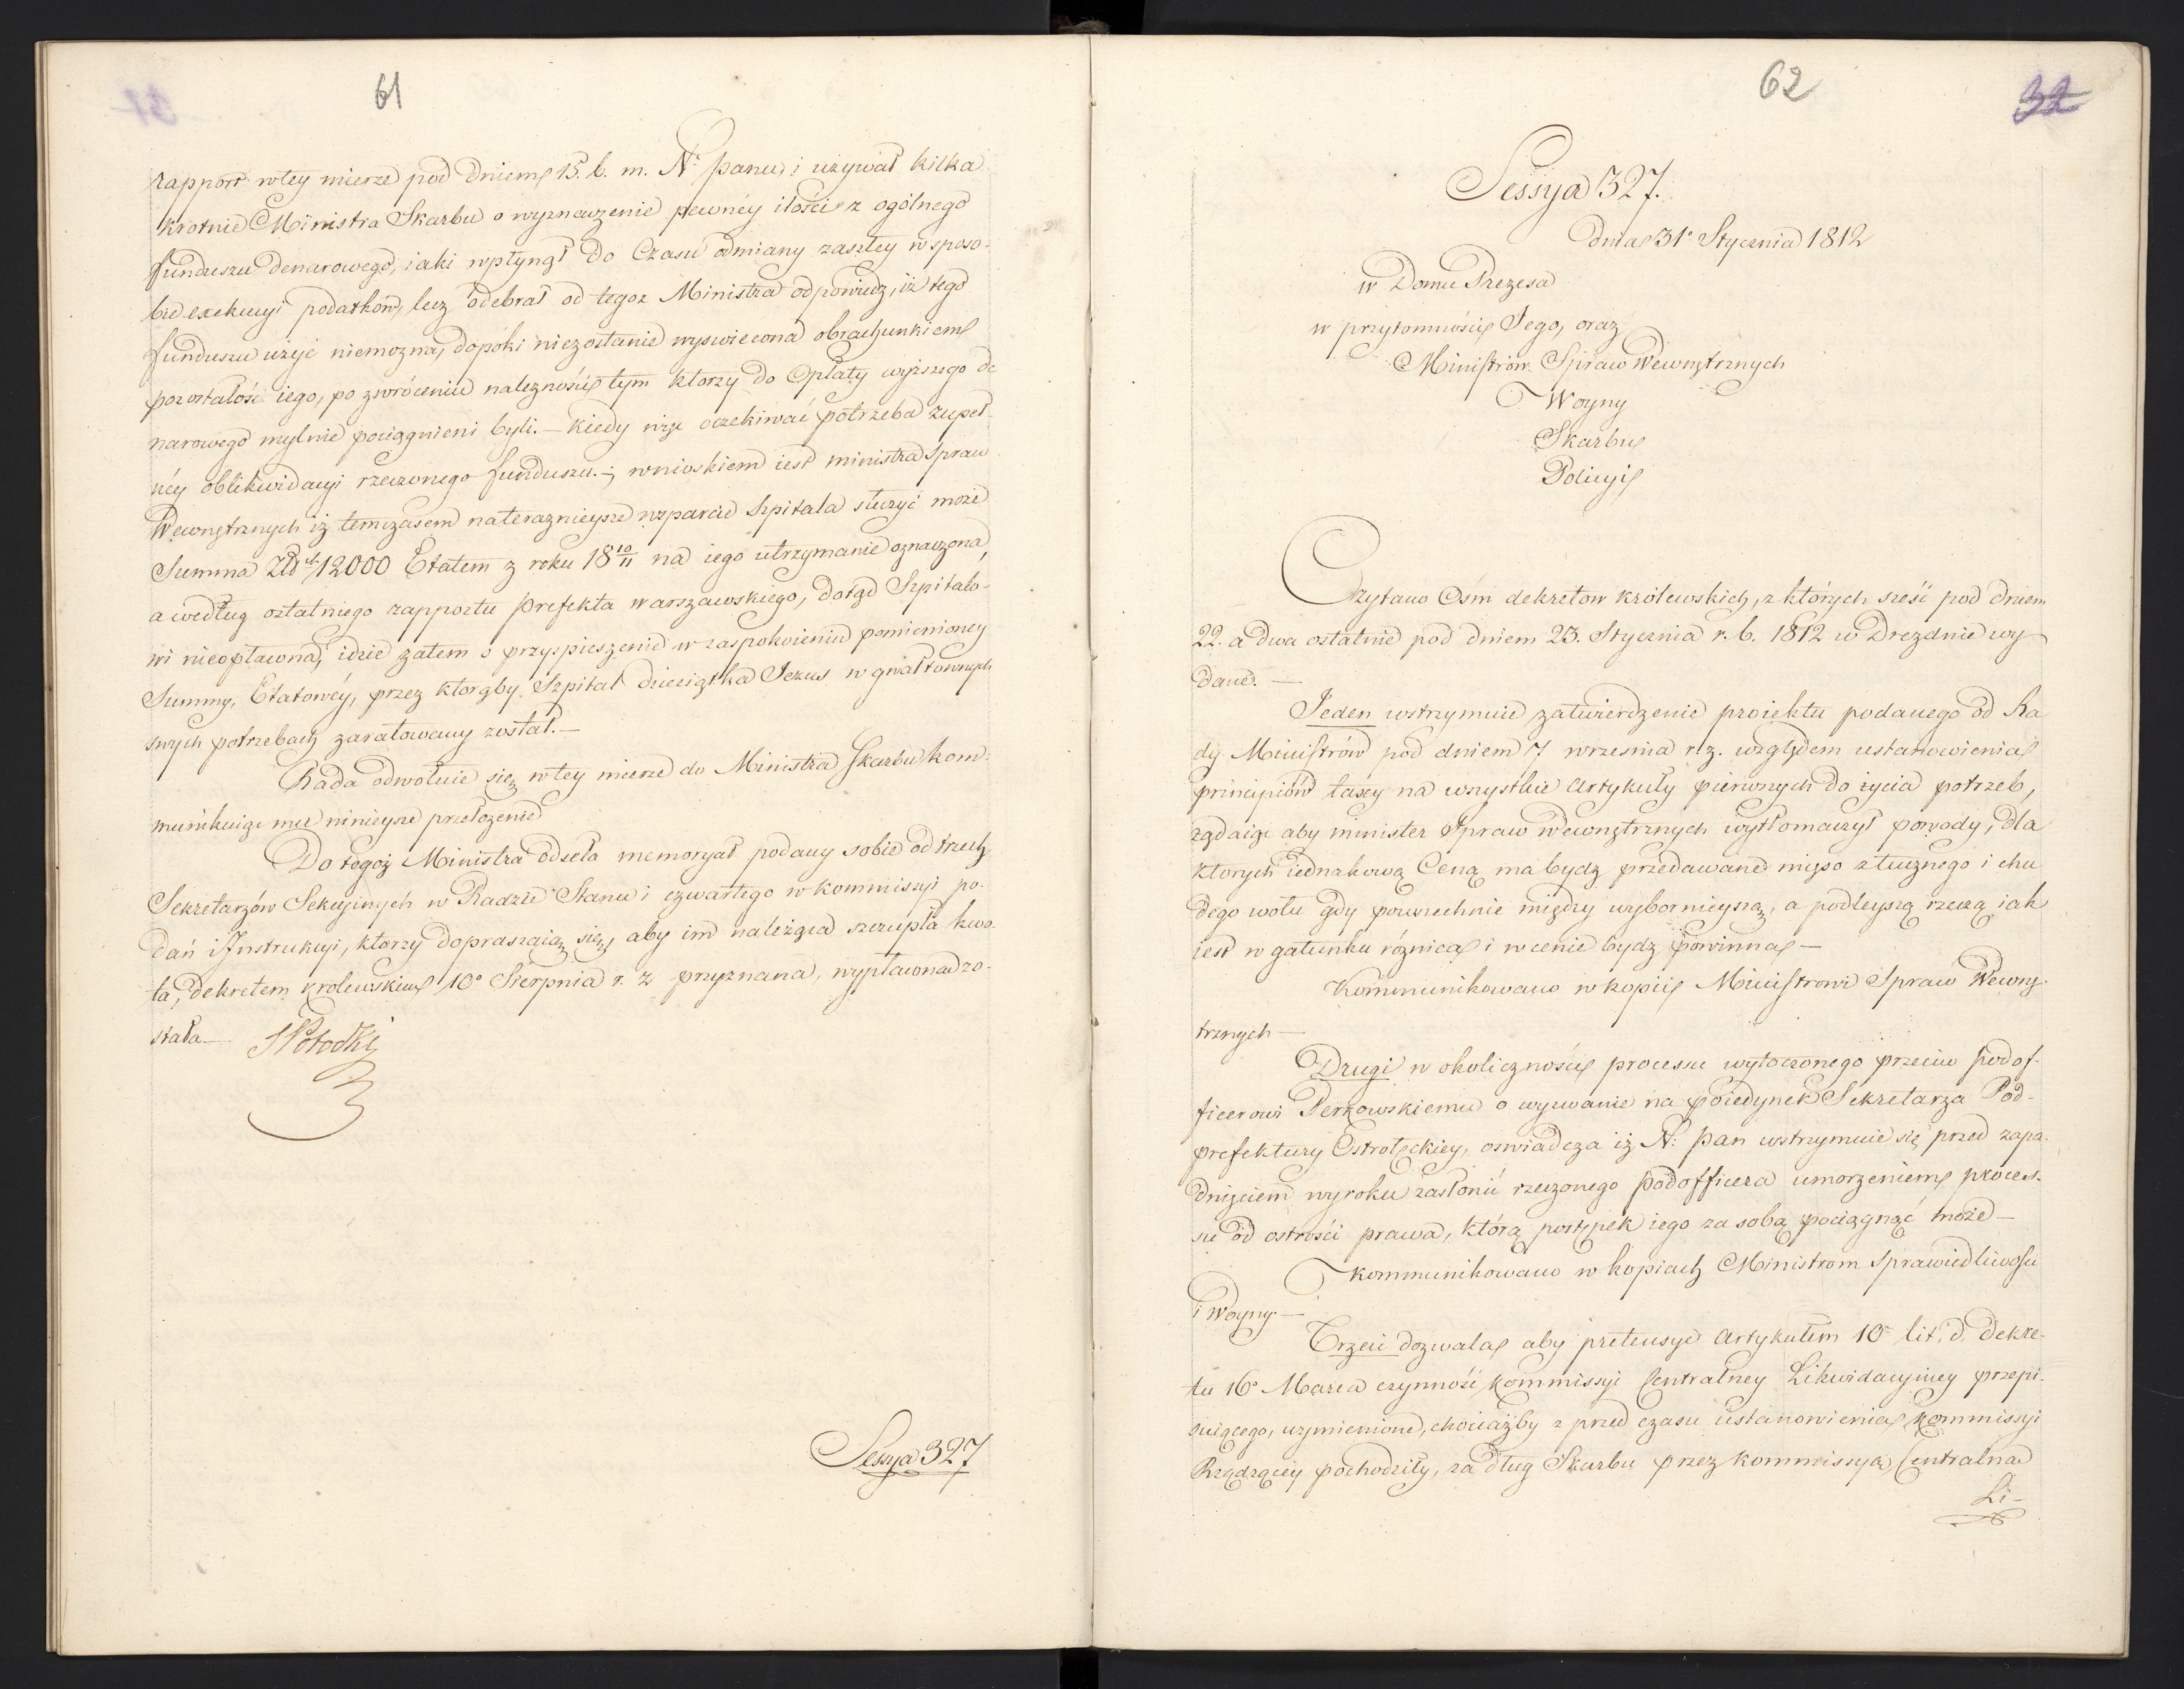 61
rapport w tey mierze pod dniem 15. b. m. N: Panu, i używał kilka
krotnie Ministra Skarbu o wyznaczenie pewnéy ilości z ogólnego
funduszu denarowego, iaki wpłynął do Czasu odmiany zaszłey w sposo-
bie exekucyi podatków, lecz odebrał od tegoż Ministra odpowiedz, iż tego
funduszu użyć niemozna, dopoki niezostanie wyswiecona obrachunkiem
pozostałość iego, po zwróceniu należności tym ktorzy do Opłaty wyższego de
narowego mylnie pociągnieni byli. — Kiedy więc oczekiwać potrzeba zupeł-
néy oblikwidacyi rzeczonego funduszu. —; wnioskiem iest Ministra Spraw
Wewnętrznych iż temczasem na teraznieysze wsparcie Szpitala służyć może
Summa Złd 12000 Etatem z roku 18 10/11 na iego utrzymanie oznaczona,
a według ostatniego rapportu Prefekta warszawskiego, dotąd Szpitalo-
wi nieopłacona, idzie zatem o przyspieszenie w zaspokoieniu pomienioney
Summy, Etatowéy, przez ktorąby Szpital dzieciątka Jezus w gwałtownych
swych potrzebach zaratowany został. —
Rada odwołuie się w tey mierze do Ministra Skarbu kom-
munikuiąc mu ninieysze przełożenie
Do tegoż Ministra odseła memoryał podany sobie od trzech
Sekretarzów Sekcyinych w Radzie Stanu i czwartego w kommissyi po-
dań i Instrukcyi, ktorzy dopraszaią się, aby im należąca szczupła kwo-
ta, dekretem krolewskim 10° Sierpnia r. z. przyznana, wypłacona zo-
stała —
SPotocki
Sessya 327
62
32
Sessya 327.
dnia 31° Stycznia 1812
w Domu Prezesa
w przytomności Jego, oraz
Ministrów Spraw Wewnętrznych
Woyny
Skarbu
Policyi
Czytano Ośm dekretow królewskich, z których sześć pod dniem
22. a dwa ostatnie pod dniem 23. Stycznia r. b. 1812 w Dreznie wy
dane. —
Jeden wstrzymuie zatwierdzenie proiektu podanego od Ra
dy Ministrów pod dniem 7 wrzesnia r. z. względem ustanowienia
principiów taxy na wszystkie Artykuły pierwszych do życia potrzeb,
żądaiąc aby minister Spraw Wewnętrznych wytłomaczył powody, dla
ktorych iednakową Ceną ma bydz przedawane mięso z tucznego i chu
dego wołu gdy powszechnie między wybornieyszą, a podleyszą rzeczą iak
iest w gatunku różnica i w cenie bydz powinna —
Kommunikowano w kopii Ministrowi Spraw Wewnę-
trznych —
Drugi w okoliczności processu wytoczonego przeciw podof-
ficerowi Perkowskiemu o wyzwanie na poiedynek Sekretarza Pod-
prefektury Ostrołęckiey, oswiadcza iż N: Pan wstrzymuie się przed zapa-
dnięciem wyroku zasłonić rzeczonego podofficera umorzeniem proces-
su od ostrości prawa, którą postępek iego za sobą pociągnąć może —
Kommunikowano w kopiach Ministrom Sprawiedliwości
i Woyny. —
Trzeci dozwala aby pretensye Artykułem 10° lit. d. dekre-
tu 16° Marca czynność Kommissyi Centralney Likwidacyiney przepi-
suiącego, wymienione, chociażby z przed czasu ustanowienia Kommissyi
Rządzącey pochodziły, za dług Skarbu przez kommissyą Centralną
Li-